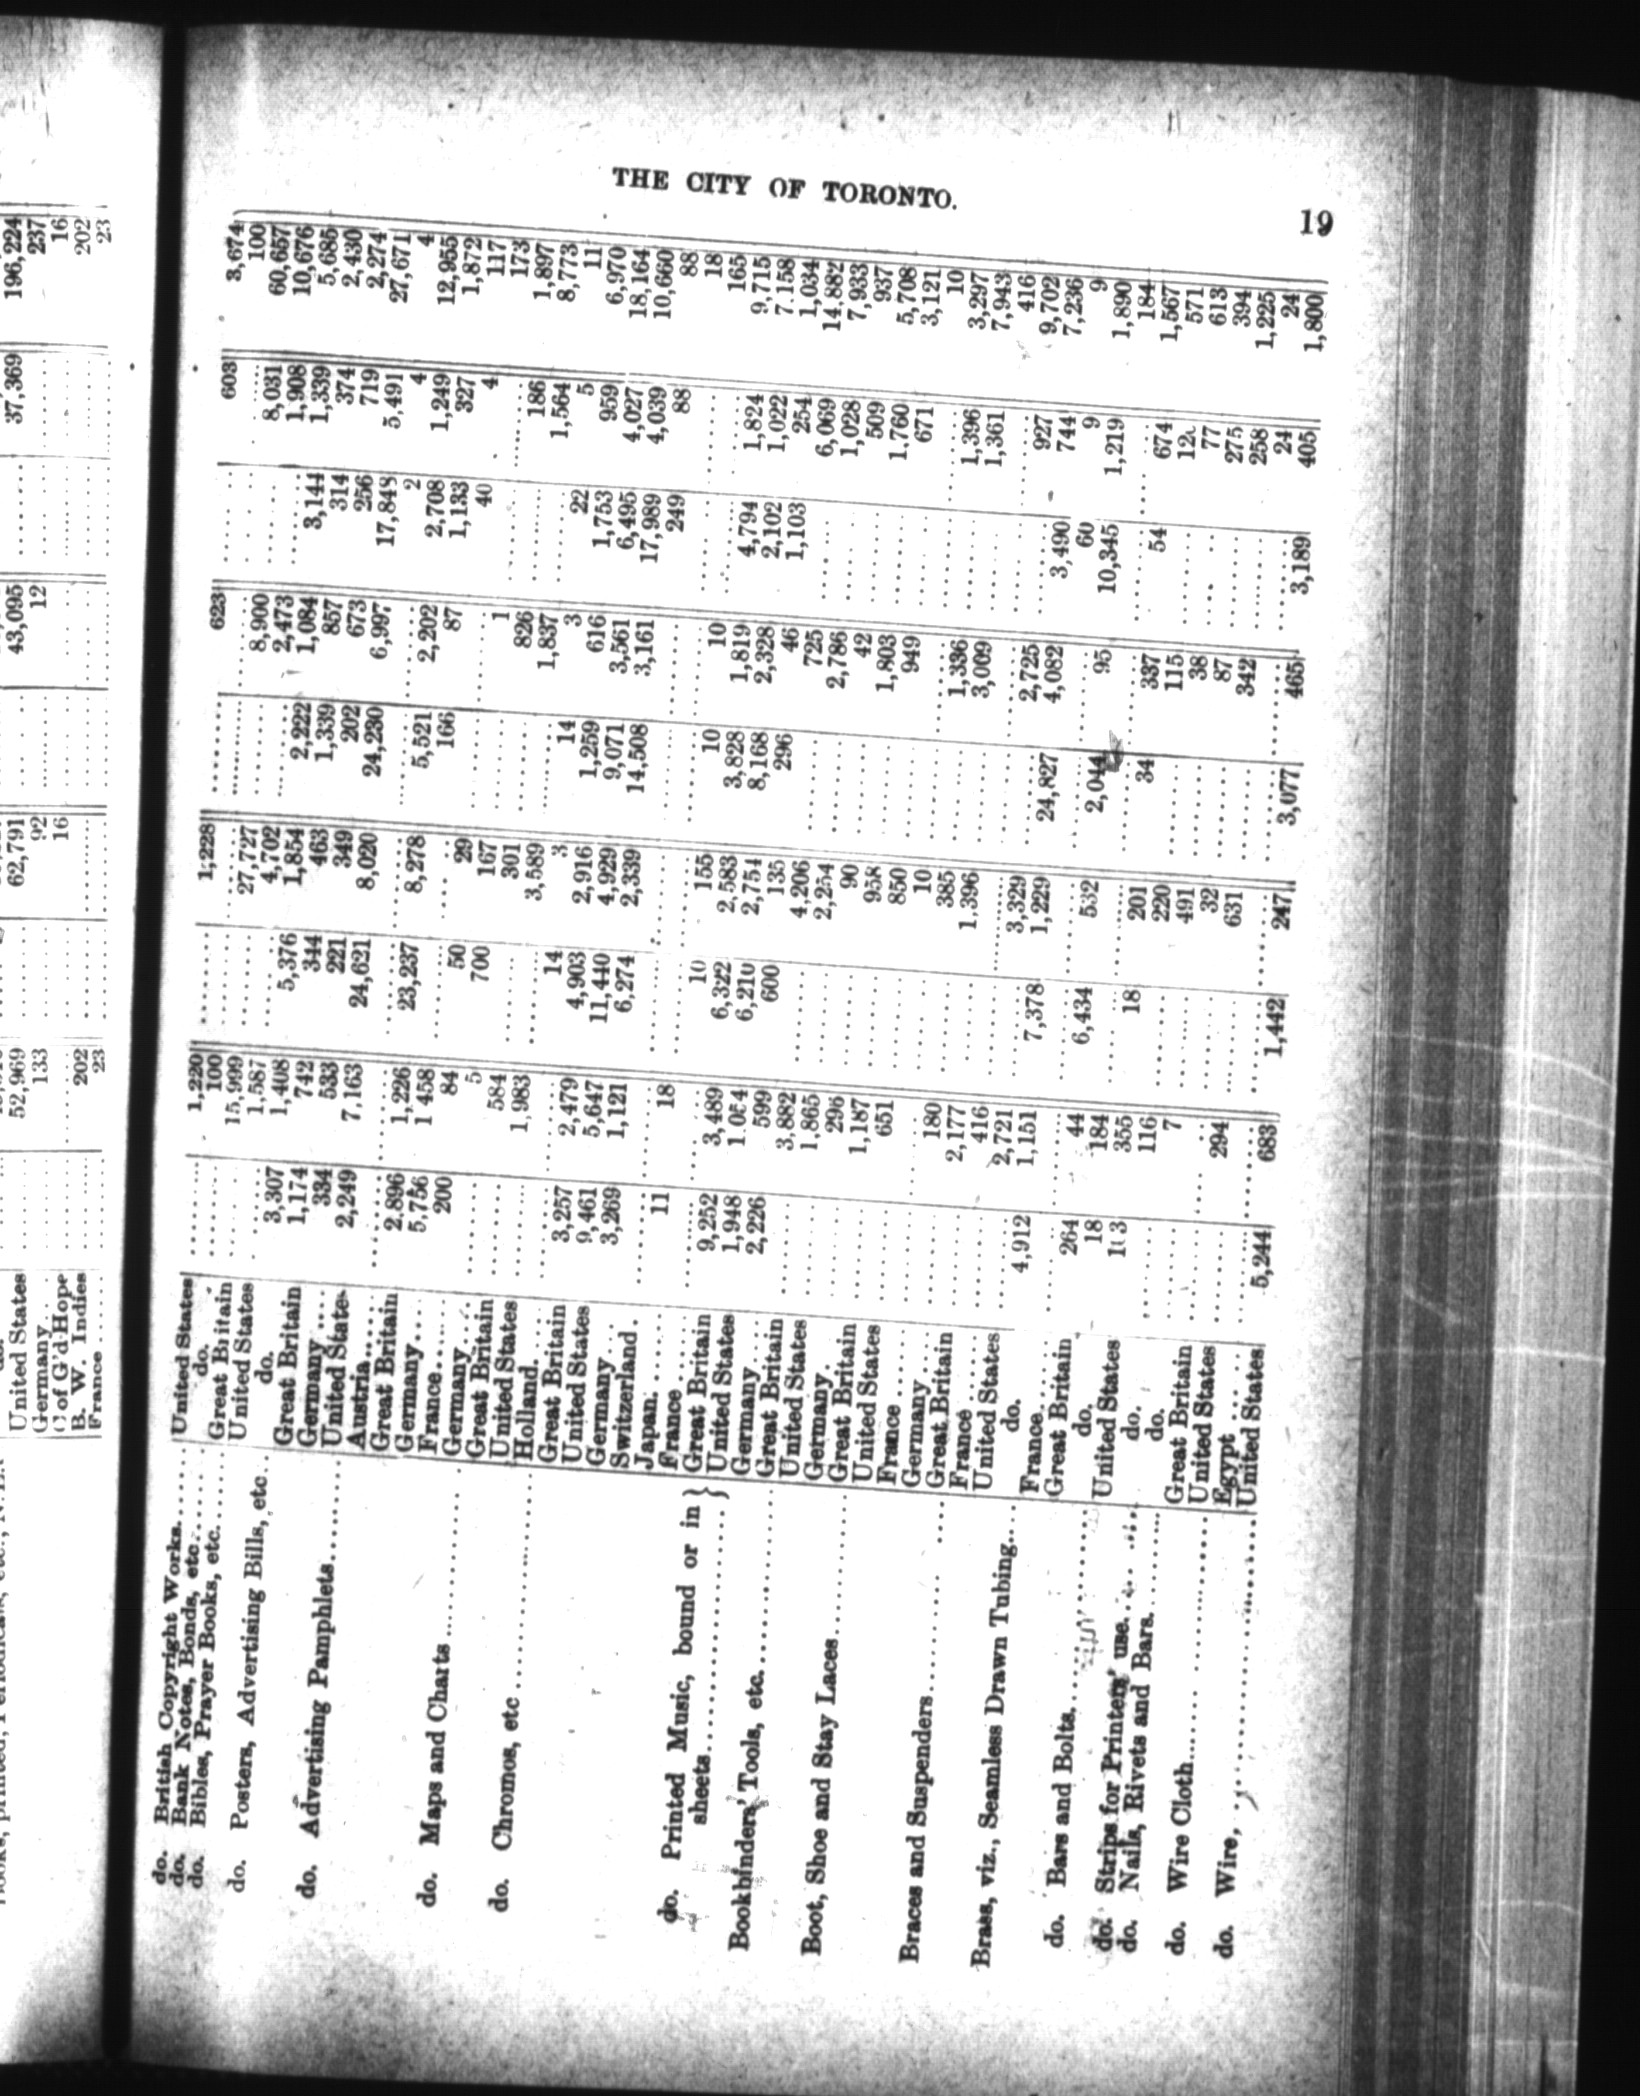 196,224
237
16
202
23
37,369
43,095
12
62,791
92
16
52,969
133
202
23
United States
Germany
C of G'd Hope
B. W. Indies
France
THE CITY OF TORONTO.
19
do. British Copyright Works...... United States ...... 1,220 ...... 1,228 ...... 623 ...... 603 3,674
do. Bank Notes, Bonds, etc...... do. ...... 100 ...... ...... ...... 100
do. Bibles, Prayer Books, etc...... Great Britain ...... 15,999 ...... 27,727 ...... 8,900 ...... 8,031 60,657
United States ...... 1,587 ...... 4,702 ...... 2,473 ...... 1,908 10,676
do. Posters, Advertising Bills, etc.. do. 3,307 1,408 5,376 1,854 2,222 1,084 3,144 1,339 5,685
Great Britain 1,174 742 344 463 1,339 857 314 374 2,430
Germany .... 334 533 221 349 202 673 256 719 2,274
do. Advertising Pamphlets...... United States 2,249 7,163 24,621 8,020 24,230 6,997 17,848 5,491 27,671
Austria..... ...... ...... ...... 2 4 4
Great Britain 2.896 1,226 23,237 8,278 5,521 2,202 2,708 1,249 12,955
Germany .... 5,756 1 458 ...... 166 87 1,133 327 1,872
France...... 200 84 50 29 ...... 40 4 117
do. Maps and Charts ...... Germany.... ...... 5 700 167 ...... 1 ...... 173
Great Britain ...... 584 ...... 301 ...... 826 ...... 186 1,897
United States ...... 1,983 ...... 3,589 ...... 1,837 ...... 1,564 8,773
do. Chromos, etc ...... Holland..... ...... 14 3 14 3 22 5 11
Great Britain 3,257 2,479 4,903 2,916 1,259 616 1,753 959 6,970
United States 9,461 5,647 11,440 4,929 9,071 3,561 6,495 4,027 18,164
Germany.... 3,269 1,121 6,274 2,339 14,508 3,161 17,989 4,039 10,660
Switzerland. ...... ...... ...... 249 88 88
Japan....... 11 18 ...... ...... ...... 18
France ...... ...... 10 155 10 10 ...... 165
do. Printed Music, bound or in } Great Britain 9,252 3,489 6,322 2,583 3,828 1,819 4,794 1,824 9,715
sheets...... } United States 1,948 1 054 6,210 2,754 8,168 2,328 2,102 1,022 7.158
Germany.... 2,226 599 600 135 296 46 1,103 254 1,034
Bookbinders' Tools, etc...... Great Britain ...... 3,882 ...... 4,206 ...... 725 ...... 6,069 14,882
United States ...... 1,865 ...... 2,254 ...... 2,786 ...... 1,028 7,933
Germany. ...... 296 ...... 90 ...... 42 ...... 509 937
Boot, Shoe and Stay Laces...... Great Britain ...... 1,187 ...... 958 ...... 1,803 ...... 1.760 5,708
United States ...... 651 ...... 850 ...... 949 ...... 671 3,121
France ...... ...... 10 ...... ...... 10
Germany.... ...... 180 ...... 385 ...... 1,336 ...... 1,396 3,297
Braces and Suspenders...... Great Britain ...... 2,177 ...... 1,396 ...... 3,009 ...... 1,361 7,943
France ...... ...... 416 ...... ...... ...... 416
United States ...... 2,721 ...... 3,329 ...... 2,725 ...... 927 9,702
Brass, viz., Seamless Drawn Tubing.... do. 4,912 1,151 7,378 1,229 24,827 4,082 3,490 744 7,236
France...... ...... ...... ...... 60 9 9
Great Britain 264 44 6,434 532 2,044 95 10,345 1,219 1,890
do. Bars and Bolts...... do. 18 184 ...... ...... ...... 184
United States 355 18 201 34 337 54 674 1,567
do. Strips for Printers' use...... do. ...... 116 ...... 220 ...... 115 ...... 571
do. Nails, Rivets and Bars...... do. ...... 7 ...... 491 ...... 38 ...... 77 613
Great Britain ...... 32 ...... 87 ...... 275 394
do. Wire Cloth...... United States ...... 294 ...... 631 ...... 342 ...... 258 1,225
Egypt .... ...... ...... ...... 24 24
do. Wire, ...... United States 5,244 683 1,442 247 3,077 465 3,189 405 1,800